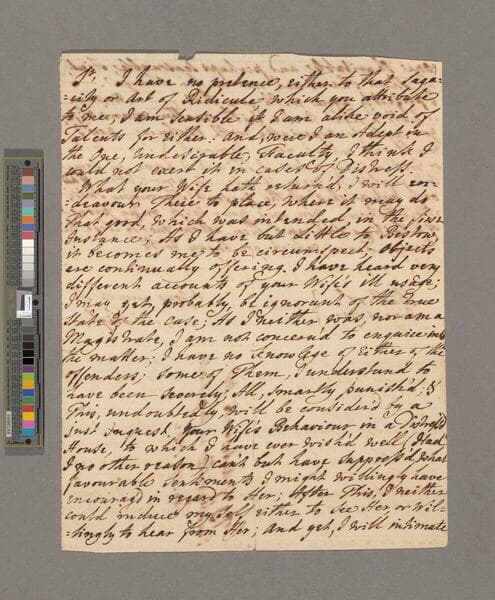 Sr, I have no pretence, either to that Saga=
=city or Art of Ridicule, which you attribute
to me; I am sensible yt I am alike void of
Talents for either: and, were I an Adept in
the One, undesirable, Faculty, I think I
could not exert it in cases of Distress.
What your Wife hath return'd, I will en=
=deavour There to place, where it may do
that good, which was intended, in the first
Instance; As I have but little to bestow,
it becomes me to be circumspect, Objects
are continually offering. I have heard very
different accounts of your Wife's ill usage;
I may yet, probably, be ignorant of the True
State of the case; As I neither was, nor am a
Magistrate, I am not concern'd to enquire into
the matter; I have no knowledge of Either of the
Offenders; some of Them, I understand to
have been severely, All, smartly punish'd; &
This, undoubtedly, will be consider'd by a
just Inquest. Your Wife's Behaviour in a
House, to which I have ever wish'd well, (had
I no other reason) can't but have suppress'd what
favourable Sentiments I might willingly have
encourag'd in regard to Her; After This, I neither
could induce myself either to See Her, or wil=
=lingly to hear from Her; And yet, I will intimate